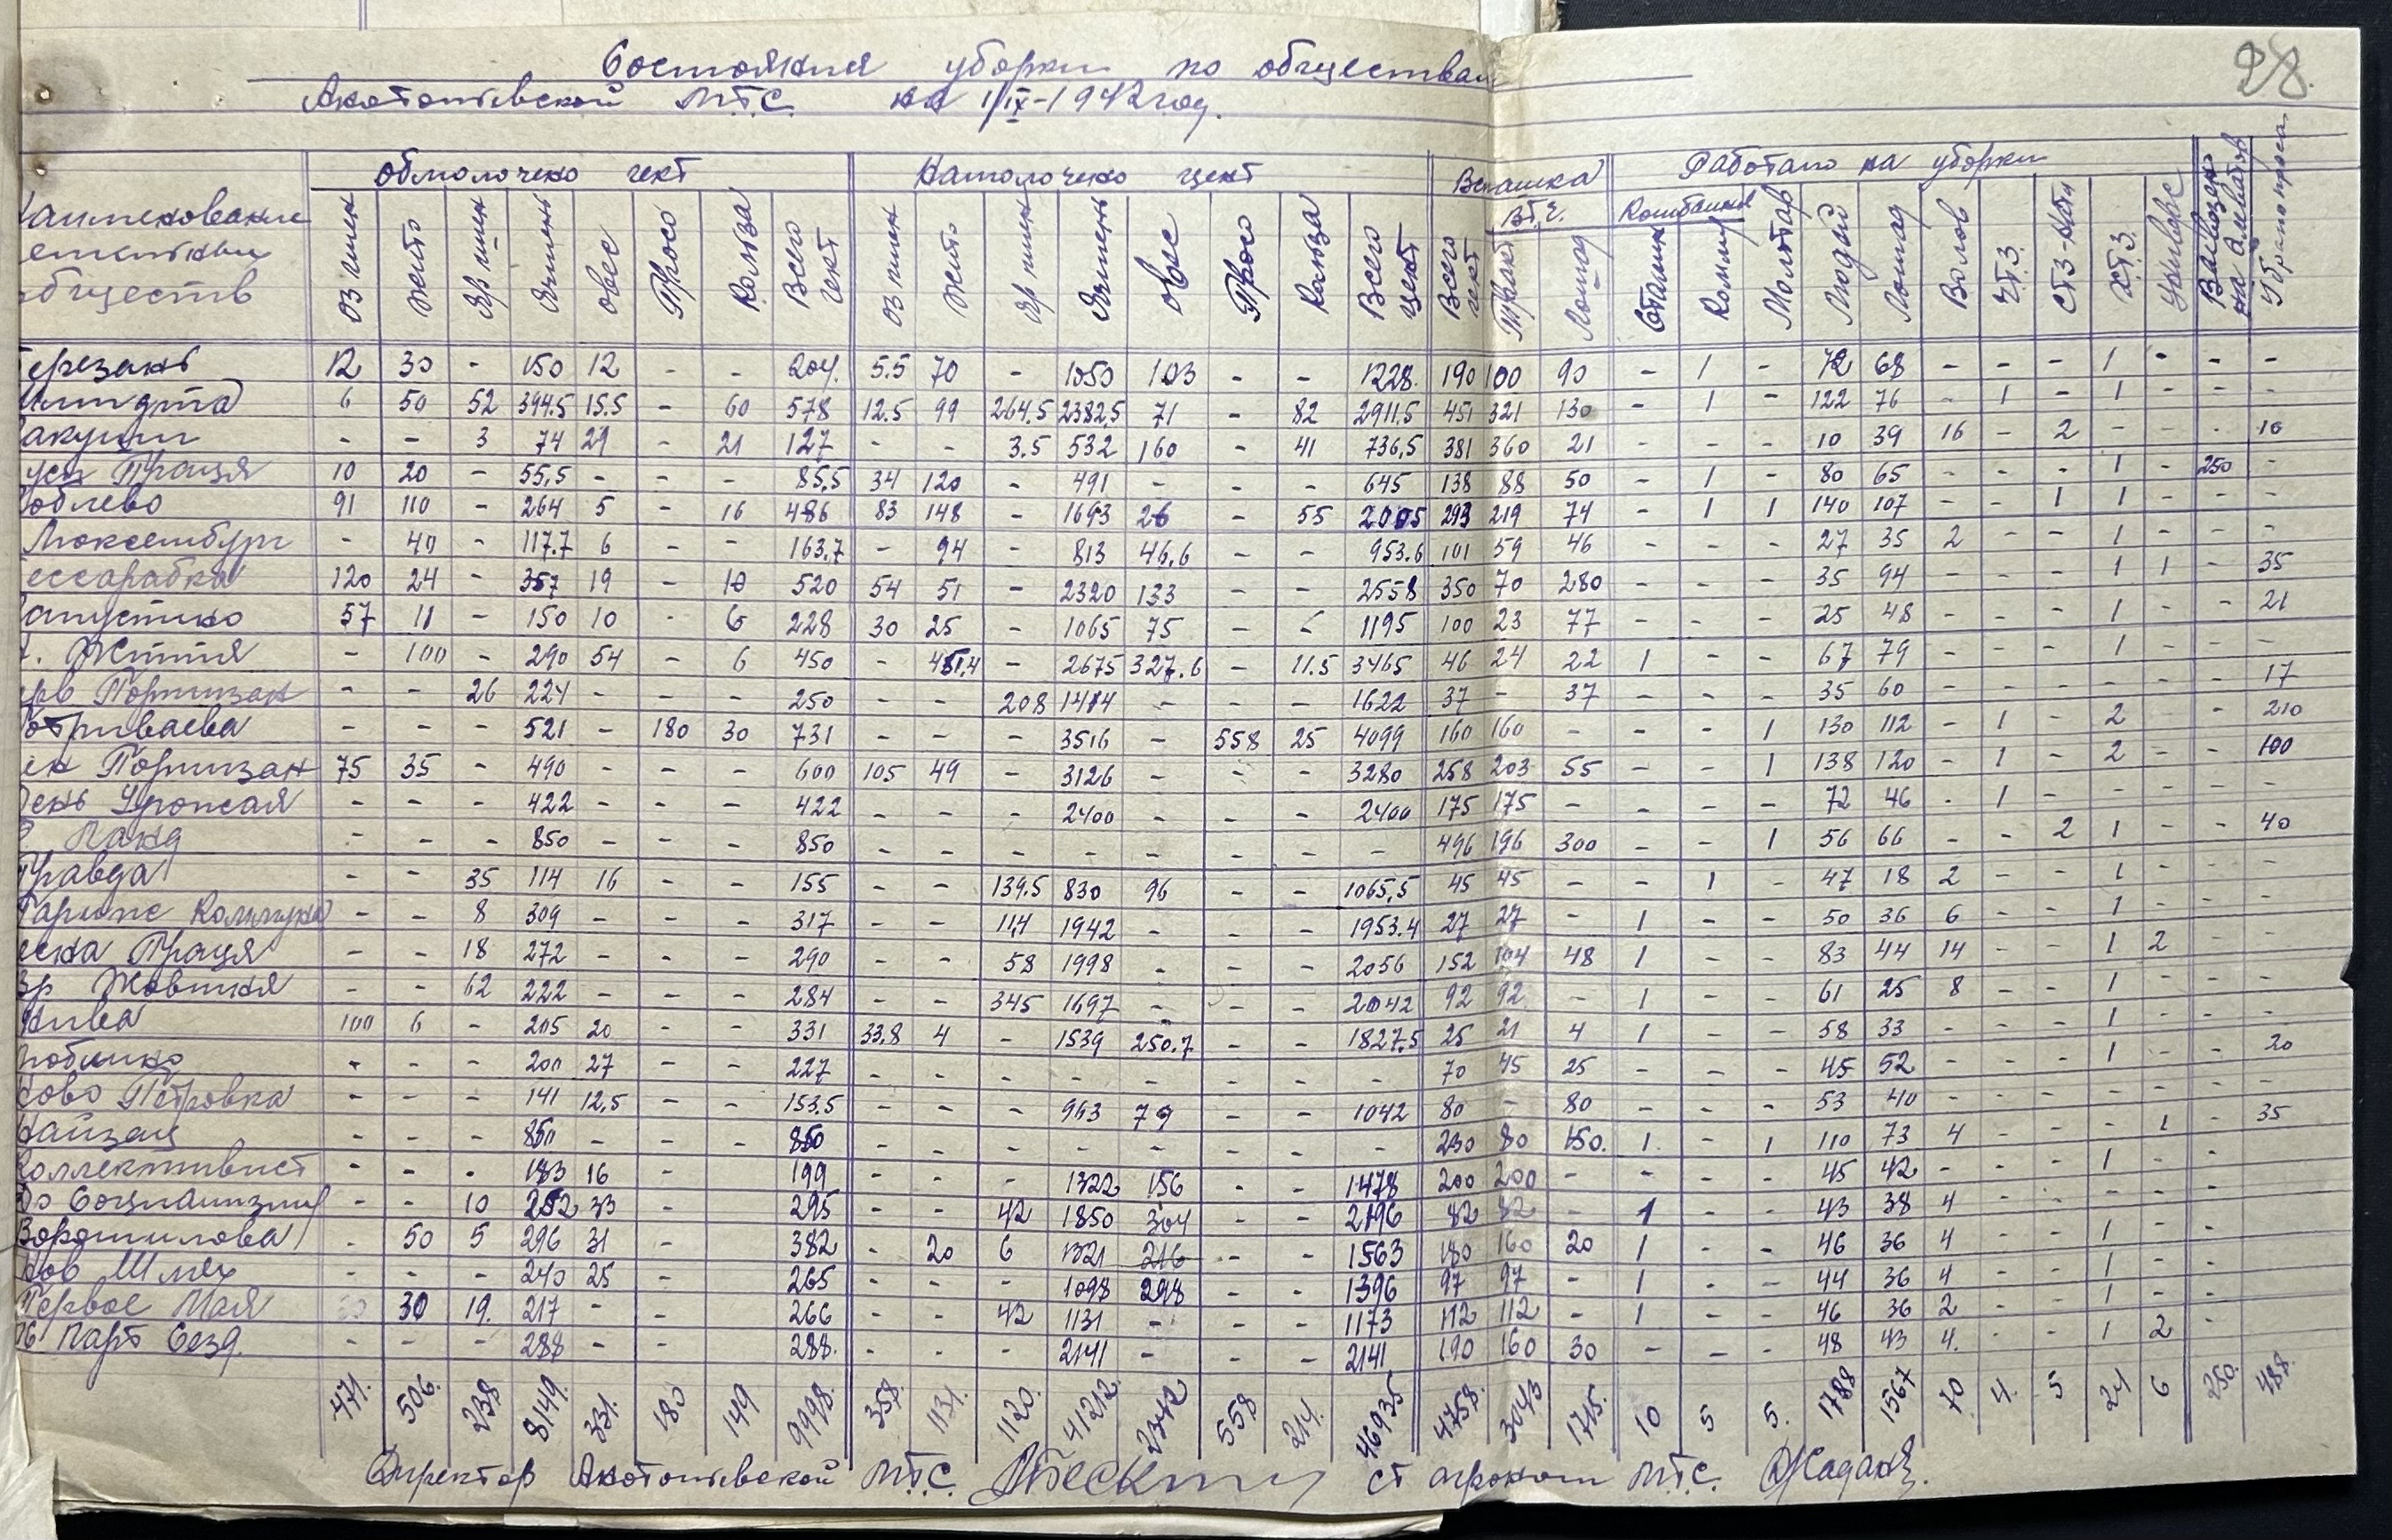 28.
Состояния уборки по обществам
Анатольевской М.Т.С. на 1/IX-1942 год.
Обмолочено гект Намолочено цент Вспашка Работало на уборки
в т.ч. Комбайни
аименование
обществ
Оз пшен Жито Яр пшен Ячмень Овес Просо Кольза Всего гект Оз пшен Жито Яр пшен Ячмень Овес Просо Кольза Всего цент Всего гект Тракт Лошад Сталин Комму Молотар Людей Лошад Волов ЧТЗ СТЗ-Нати ХТЗ Универс Вывезено на елеватор Убрано проса
ерезань 12 30 - 150 12 - - 204. 5.5 70 - 1050 103 - - 1228. 190 100 90 - 1 - 72 68 - - - 1 - - -
6 50 52 394.5 15.5 - 60 578 12.5 99 264.5 2382,5 71 - 82 2911.5 451 321 130 - 1 - 122 76 - 1 - 1 - - -
акуши - - 3 74 29 - 21 127 - - 3.5 532 160 - 41 736,5 381 360 21 - - - 10 39 16 - 2 - - - 10
Праця 10 20 - 55,5 - - - 85,5 34 120 - 491 - - - 645 138 88 50 - 1 - 80 65 - - - 1 - 250 -
облево 91 110 - 264 5 - 16 486 83 148 - 1693 26 - 55 2005 293 219 74 - 1 1 140 107 - - 1 1 - - -
Люксембург - 40 - 117.7 6 - - 163,7 - 94 - 813 46,6 - - 953.6 101 59 46 - - - 27 35 2 - - 1 - - -
ессарабка 120 24 - 357 19 - 10 520 54 51 - 2320 133 - - 2558 350 70 280 - - - 35 94 - - - 1 1 - 35
апустино 57 11 - 150 10 - 6 228 30 25 - 1065 75 - - 1195 100 23 77 - - - 25 48 - - - 1 - - 21
. Життя - 100 - 290 54 - 6 450 - 451,4 - 2675 327.6 - 11.5 3465 46 24 22 1 - - 67 79 - - - 1 - - -
рв Партизан - - 26 224 - - - 250 - - 208 1414 - - - 1622 37 - 37 - - - 35 60 - - - - - - 17
отриваева - - - 521 - 180 30 731 - - - 3516 - 558 25 4099 160 160 - - - 1 130 112 - 1 - 2 - - 210
ен Партизан 75 35 - 490 - - - 600 105 49 - 3126 - - - 3280 258 203 55 - - 1 138 120 - 1 - 2 - - 100
ень Урожая - - - 422 - - - 422 - - - 2400 - - - 2400 175 175 - - - - 72 46 - 1 - - - - -
Ланд - - - 850 - - - 850 - - - - - - - - 496 196 300 - - 1 56 66 - - 2 1 - - 40
Правда - - 35 114 16 - - 155 - - 139.5 830 96 - - 1065,5 45 45 - - 1 - 47 18 2 - - 1 - - -
Парижс Коммуна - - 8 309 - - - 317 - - 11,4 1942 - - - 1953.4 27 27 - 1 - - 50 36 6 - - 1 - - -
еска Праця - - 18 272 - - - 290 - - 58 1998 - - - 2056 152 104 48 1 - - 83 44 14 - - 1 2 - -
Зр Жовтня - - 62 222 - - - 284 - - 345 1697 - - - 2042 92 92 - 1 - - 61 25 8 - - 1 - - -
Нива 100 6 - 205 20 - - 331 33,8 4 - 1539 250.7 - - 1827,5 25 21 4 1 - - 58 33 - - - 1 - - -
- - - 200 27 - - 227 - - - - - - - - 70 45 25 - - - 45 52 - - - 1 - - 20
ово Петровка - - - 141 12,5 - - 153,5 - - - 963 79 - - 1042 80 - 80 - - - 53 40 - - - - - - -
- - - 850 - - - 850 - - - - - - - - 230 80 150. 1 - 1 110 73 4 - - - 1 - 35
Коллективист - - - 183 16 - 199 - - - 1322 156 - - 1478 200 200 - - - - 45 42 - - - 1 - -
До Социализму - - 10 252 33 - 295 - - 42 1850 304 - - 2196 82 82 - 1 - - 43 38 4 - - - - -
Ворошилова - 50 5 296 31 - 382 - 20 6 1321 216 - - 1563 180 160 20 1 - - 46 36 4 - - 1 - -
Нов Шлях - - - 240 25 - 265 - - - 1098 298 - - 1396 97 97 - 1 - - 44 36 4 - - 1 - -
Первое Мая 30 19. 217 - - 266 - - 42 1131 - - - 1173 112 112 - 1 - - 46 36 2 - - 1 - -
Парт Сезд. - - - 288 - - 288. - - - 2141 - - - 2141 190 160 30 - - - 48 43 4. - - 1 2 -
471. 506. 238 8149. 331. 180 149 9998. 358. 1131. 1120. 41212. 2342 558 214. 46935 4758. 3043 1715. 10 5 5. 1788 1567 70 4. 5 24 6 250. 488.
Директор Анатольевской М.Т.С. ст агроном М.Т.С.